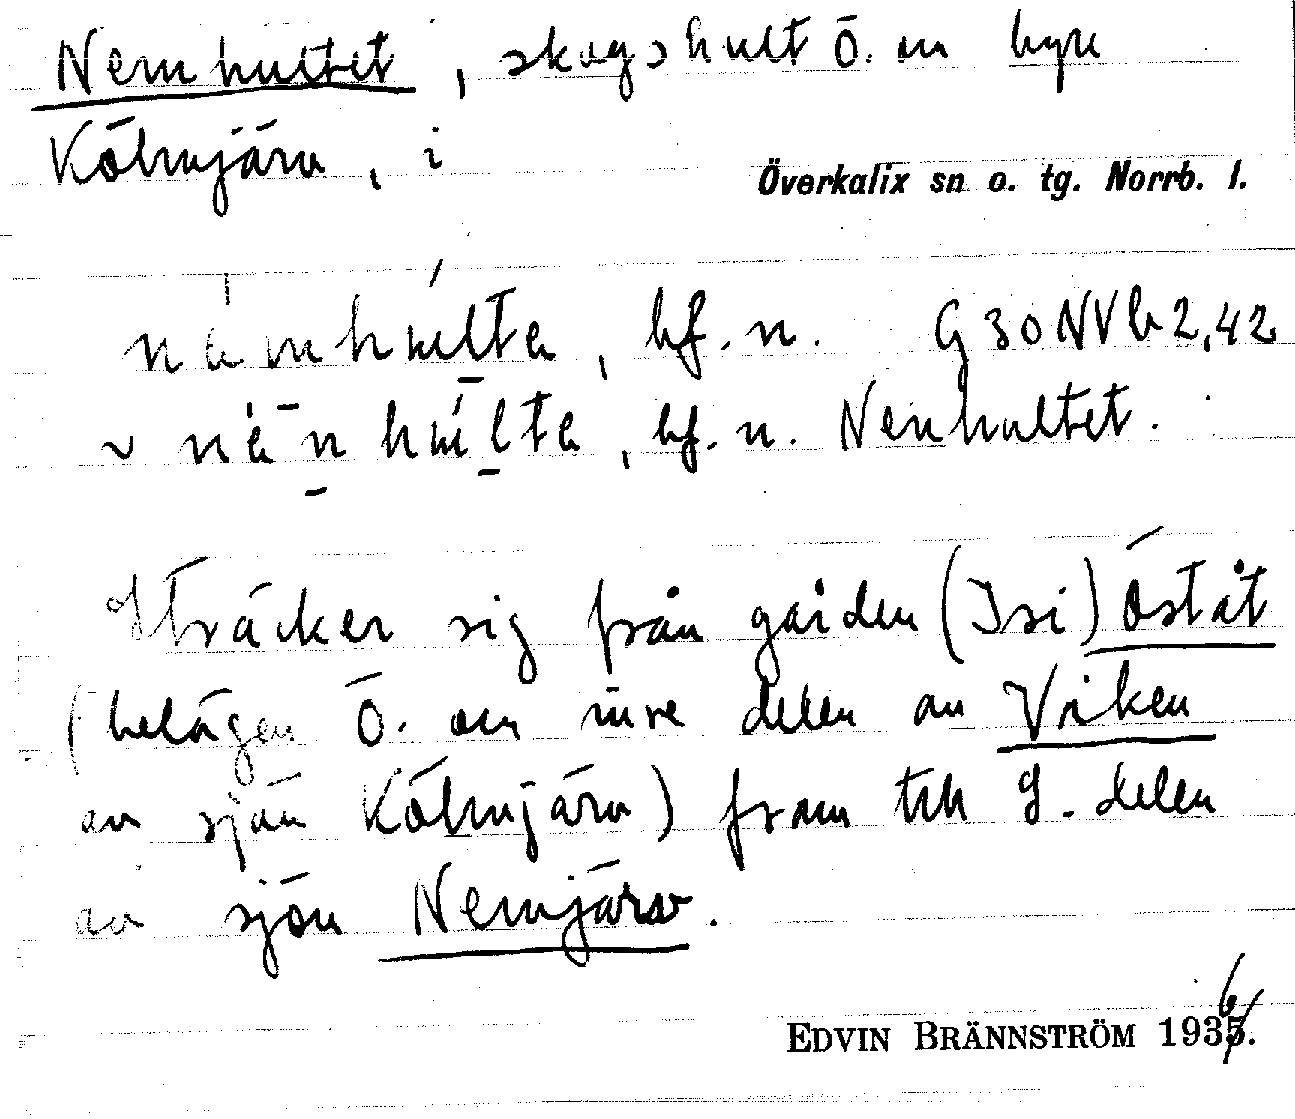 Nemhultet, skogshult Ö. om byn
Kölmjärv, i
Överkalix sn o. tg. Norrb. l.
nàmhúlta, bf. n. G 30 NV b 2,42
~ nànhúlta, bf. n. Nenhultet.
Sträcker sig från gården (Isi) Öståt
(belägen Ö. om inre delen av Viken
av sjön Kölmjärv) fram till S. delen
av sjön Nemjärv.
EDVIN BRÄNNSTRÖM 1936.